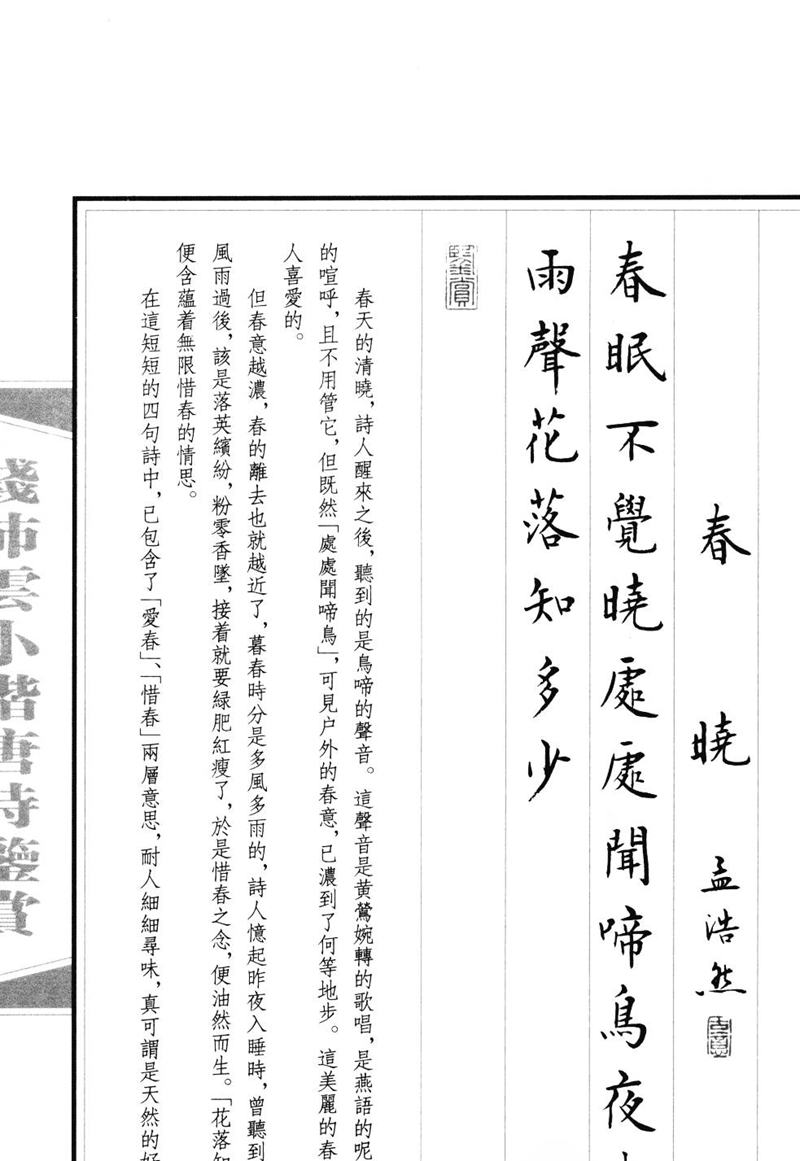 春曉 孟浩然
春眠不覺曉處處聞啼鳥夜
雨聲花落知多少
春天的清曉，詩人醒來之後，聽到的是鳥啼的聲音。這聲音是黄鶯婉轉的歌唱，是燕語的呢
的喧呼，且不用管它，但既然「處處聞啼鳥」，可見户外的春意，已濃到了何等地步。這美麗的春
人喜愛的。
但春意越濃，春的離去也就越近了，暮春時分是多風多雨的，詩人憶起昨夜入睡時，曾聽到
風雨過後，該是落英繽紛，粉零香墜，接着就要緑肥紅瘦了，於是惜春之念，便油然而生。「花落知
便含蘊着無限惜春的情思。
在這短短的四句詩中，已包含了「愛春」、「惜春」兩層意思，耐人細細尋味，真可謂是天然的好
錢沛雲小楷唐詩鑒賞